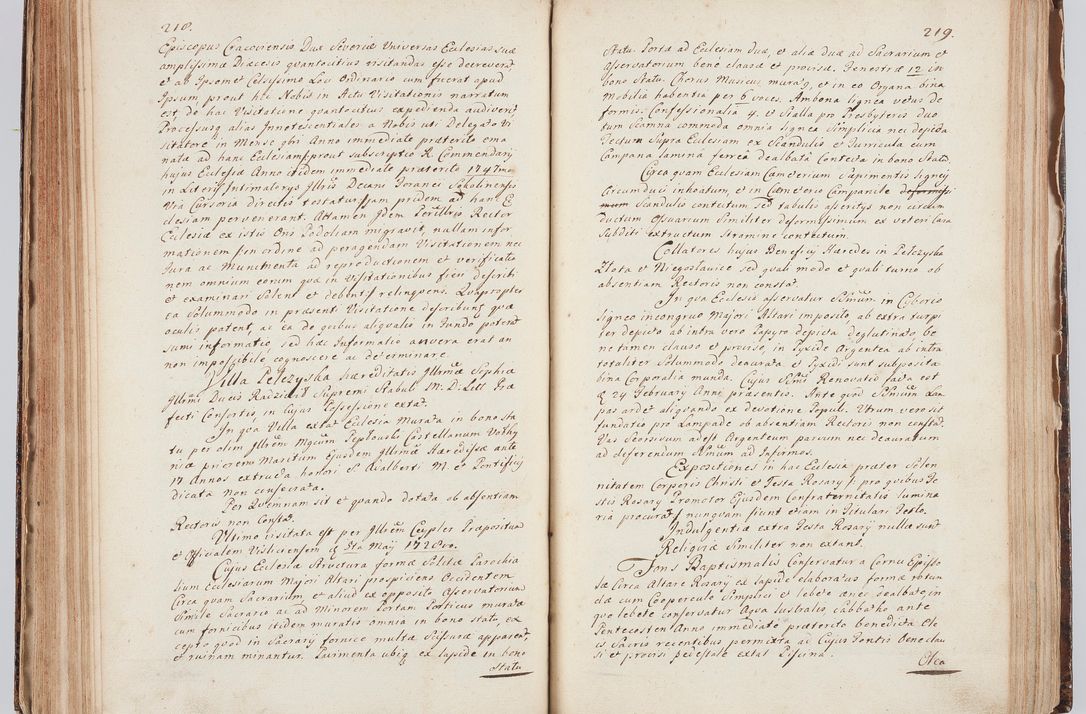 218.
Episcopus Cracoviensis Dux Severiæ Universas Ecclesias suæ
amplissimæ Diæcesis quantocitius visitandas esse decreverat
et ab Ipsomet Celsissimo Loci Ordinario cum fuerat apud
Ipsum prout hic Nobis in Actu Visitationis narratum
est, de hac Visitatione quantocitius expedienda audiveri?
Processusq alias Innotescentiales a Nobis uti Delegato Vi
sitatore in Mense 9bri Anno immediate præterito ema
nata ad hanc Ecclesiam prout subscriptio R. Commendarij
hujus Ecclesiæ Anno itidem immediate præterito 1747mo
in Literis Intimatorijs Illris Decani Foranei Sokolinensis
Via Cursoria directis testatur jam pridem ad hanc E
clesiam pervenerant. Attamen Idem Perillris Rector
Ecclesiæ ex istis Oris Podoliam migravit, nullam infor
mationem in ordine ad peragendam Visitationem nec
Jura ac Munimenta ad reproductionem et verificatio
nem omnium eorum quæ in Visitationibus fieri describi
et examinari solent et debent relinquens. Quapropter
ea solummodo in præsenti Visitatione describunt quæ
oculis patent, ac ea de quibus aliqualis in Fundo poterat
sumi informatio sed hæc Informatio an vera erat an
non impossibile cognoscere ac determinare.
Villa Pełczyska hæreditatis Illrmæ Sophiæ
Illrmi Ducis Radziwił Supremi Stabuli M: D: Litt Præ
fecti Consortis, in Cujus Possessione extat.
In qua Villa extat Ecclesia Murata in bono sta
tu per olim Illrem Mgcum Castellanum Volhy
niæ priorem Maritum Ejusdem Illrmæ Hæredissæ ante
17 Annos extructa honori S. Adalberti M. et Pontificij
dicata Non consecrata.
Per Quemnam sit et quando dotata ob absentiam
Rectoris non Constat.
Ultimo visitata est per Illrem Ceypler Præpositum
et Officialem Visliciensem d 5ta Maij 1728vo.
Cujus Ecclesiæ Structura formæ solitæ Parochia
lium Ecclesiarum Majori Altari prospiciens Occidentem
Circa quam Sacrarium, et aliud ex opposito Asservatorium
Simile Sacrario ac ad Minorem Portam Porticus murata
cum fornicibus itidem muratis omnia in bono statu, ex
cepto quod in Sacrarij fornice multæ Scissuræ apparent
et ruinam minantur. Pavimenta ubiq ex lapide in bono
Statu
219.
Statu. Portæ ad Ecclesiam duæ, et aliæ duæ ad Sacrarium et
Asservatorium bene clausæ et provisæ. Fenestræ 12 in
bono Statu. Chorus Musicus murat9, et in eo Organa bina
Mobilia habentia per 6 voces. Ambona lignea vetus de
formis. Confessionalia 4. et Stalla pro Presbyteris duo
tum Scamna commoda omnia lignea Simplicia nec depicta
Tectum Supra Ecclesiam ex Scandulis et Turricula cum
Campana lamina ferrea dealbata Contecta in bono Statu.
Circa quam Ecclesiam Cæmeterium Cæpimentis ligneis
Circumduci inchoatum, et in Cæmeterio Campanile deformissi
mum Scandulis contectum sed tabulis asseritys non circum
ductum Ossuarium Similiter deformissimum ex veteri Casa
Subditi extructum Stramine contectum.
Collatores hujus Beneficij Hæredes in Pełczyska
Złota et Niegosławice sed quali modo et quali turno ob
absentiam Rectoris non constat.
In qua Ecclesia asservatur SSmum. in Ciborio
ligneo incongruo Majori Altari imposito, ab extra turpi
ter depicto ab intra vero Papyro depicta deglutinato, be
ne tamen clauso et proviso, in Pyxide Argentea ab intra
totaliter Solummodo deaurata, et Pyxidi sunt subposita
bina Corporalia munda. Cujus SSmi Renovatio facta est
d 24 February Anni præsentis. Ante quod SSmum Lam
pas ardet aliquando ex devotione Populi. Utrum vero sit
fundatio pro Lampade ob absentiam Rectoris non constat.
Vas Seorsivum adest Argenteum parvum nec deauratum
ad deferendum SSmum ad Infirmos.
Expositiones in hac Ecclesia præter Solen
nitatem Corporis Christi et Festa Rosary pro quibus Fe
stis Rosary Promotor Ejusdem Confraternitatis lumina
ria procurat nunquam fiunt etiam in Titulari Festo.
Indulgentiæ extra Festa Rosarij nullæ sunt
Religiæ Similiter non extant.
Fons Baptismalis Conservatur a Cornu Episto
læ Circa Altare Rosarij ex lapide elaboratus formæ rotun
dæ cum Cooperculo Simplici et lebete æneo dealbato, in
quo lebete conservatur Aqua lustralis Sabbatho ante
Pentecosten Anno immediate præterito benedicta Ole
is Sacris recentibus permixta ad Cujus Fontis bene clau
si et provisi pedestale extat Piscina.
Olea